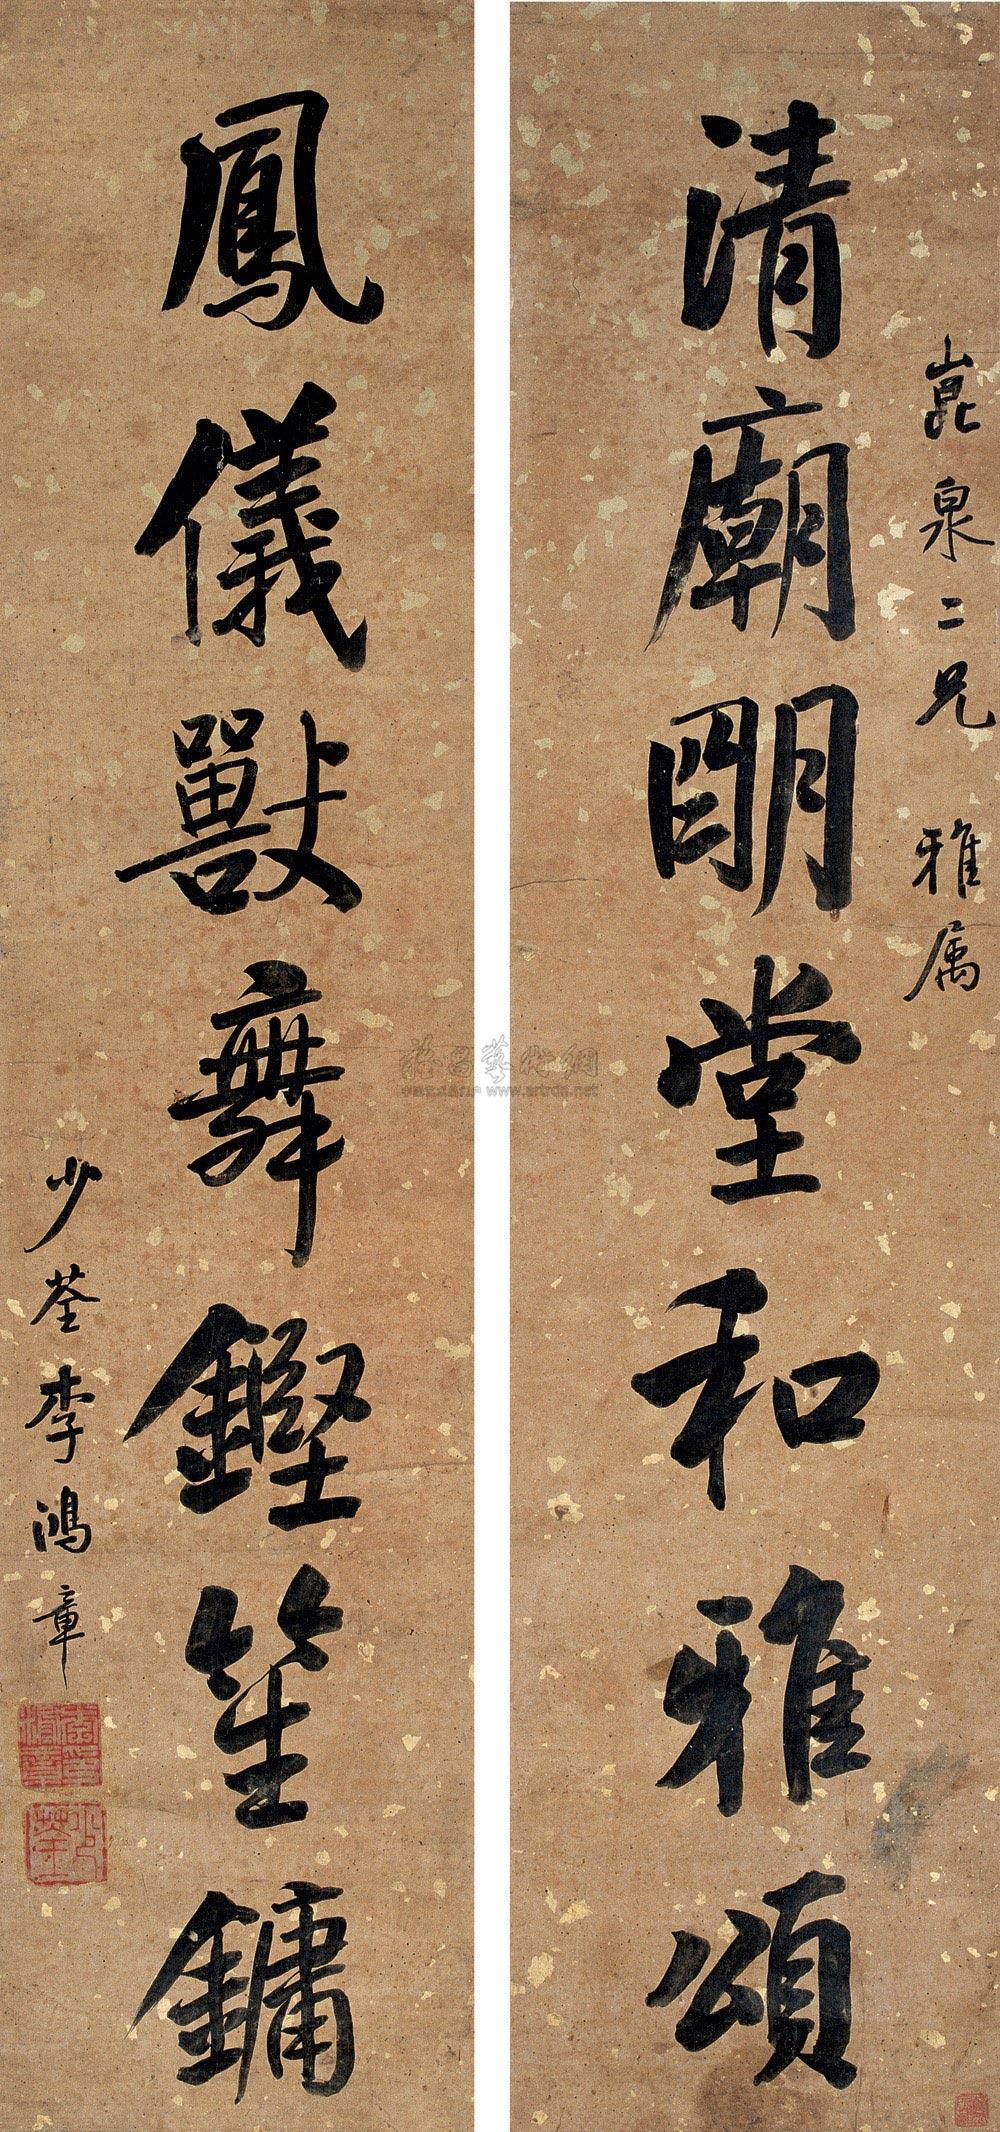 崑泉二兄雅属
清廟朙堂和雅頌
鳳儀獸舞鏗笙鏞
少荃李鴻章
www.artrdn.net